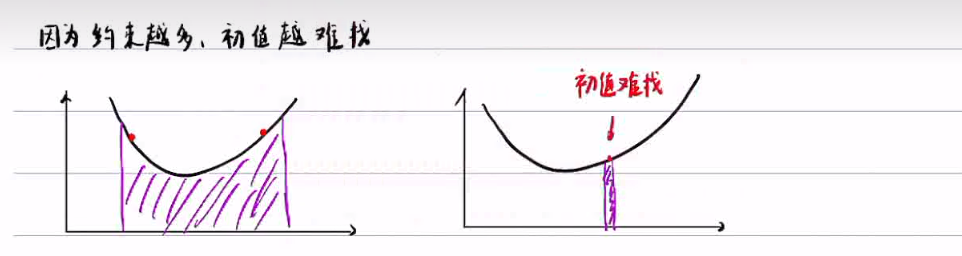 因为约束越多、初值越难找
初值难找